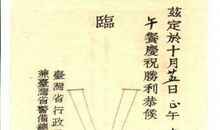 茲定於十月五日正午
午餐慶祝勝利恭候
臨
臺灣省行政
兼臺灣省警備總